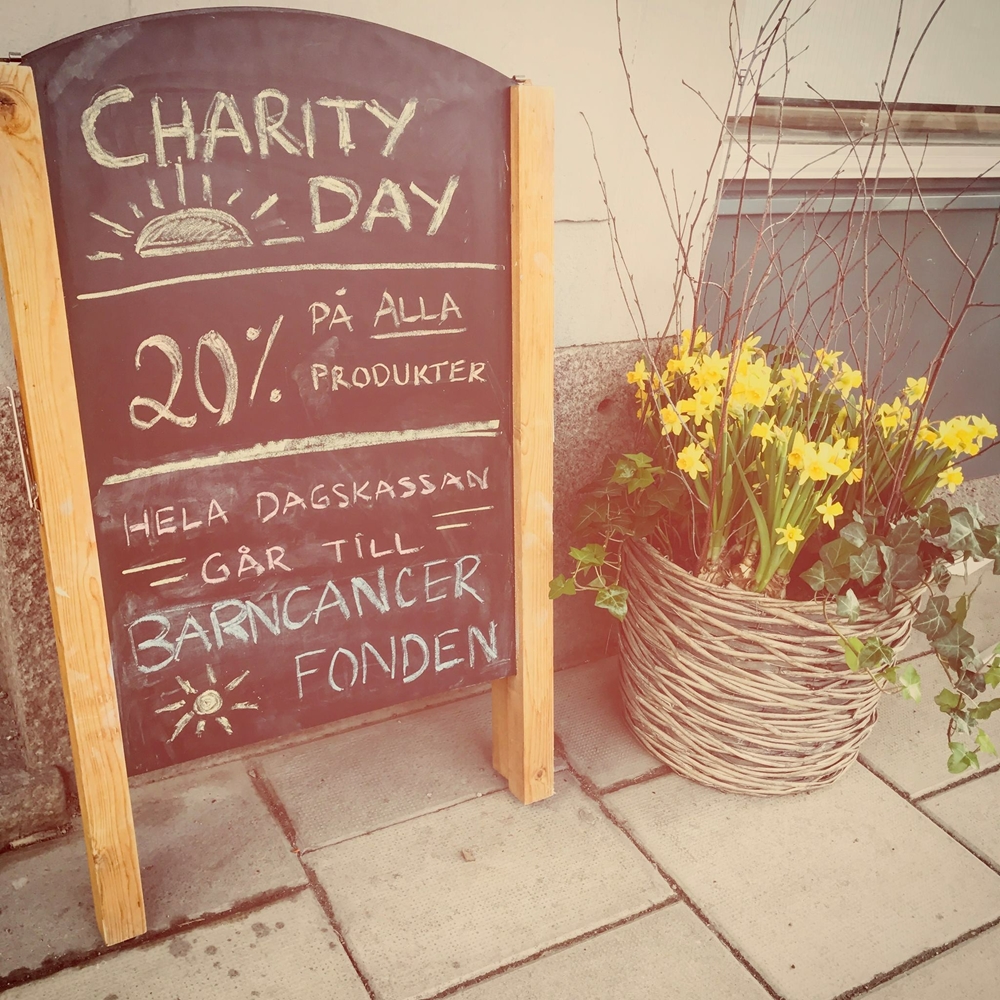 CHARITY
DAY
20% PÅ ALLA
PRODUKTER
HELA DAGSKASSAN
GÅR TILL
BARNCANCER
FONDEN